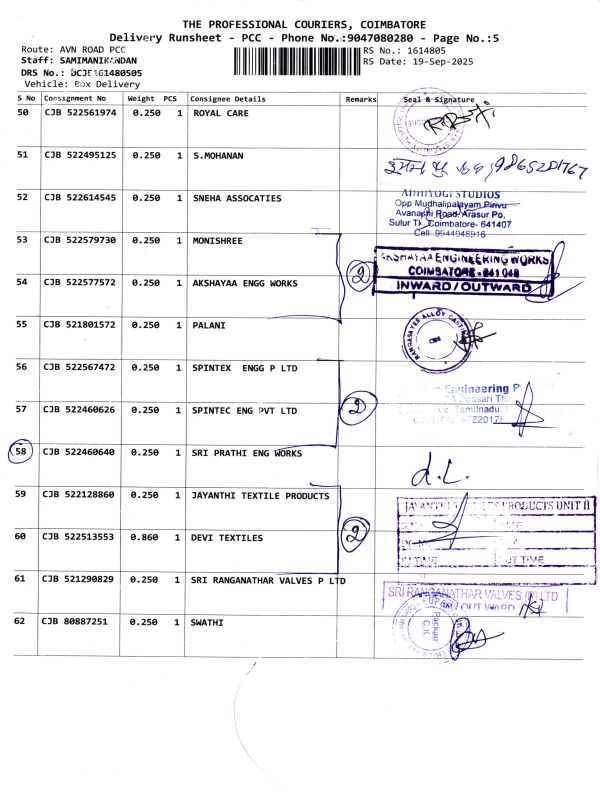 THE PROFESSIONAL COURIERS, COIMBATORE
Delivery Runsheet - PCC - Phone No.:9047080280 - Page No.:5
Route: AVN ROAD PCC RS No.: 1614805
Staff: SAMIMANIKANDAN RS Date: 19-Sep-2025
DRS No.:
Vehicle: Box Delivery
S No Consignment No Weight PCS Consignee Details Remarks Seal & Signature
50 CJB 522561974 0.250 1 ROYAL CARE
51 CJB 522495125 0.250 1 S.MOHANAN
52 CJB 522614545 0.250 1 SNEHA ASSOCATIES
ADHIYOGI STUDIOS
Opp Mudhalipalayam Pirivu
Avanashi Road, Arasur Po,
Sulur Tk, Coimbatore- 641407
Cell: 9944948916
53 CJB 522579730 0.250 1 MONISHREE
54 CJB 522577572 0.250 1 AKSHAYAA ENGG WORKS 2
AKSHAYAA ENGINEERING WORKS
COIMBATORE - 641 048
INWARD / OUTWARD
55 CJB 521801572 0.250 1 PALANI
56 CJB 522567472 0.250 1 SPINTEX ENGG P LTD
Engineering P
57 CJB 522460626 0.250 1 SPINTEC ENG PVT LTD 2
Tamilnadu.
58 CJB 522460640 0.250 1 SRI PRATHI ENG WORKS
59 CJB 522128860 0.250 1 JAYANTHI TEXTILE PRODUCTS
PRODUCTS UNIT II
60 CJB 522513553 0.860 1 DEVI TEXTILES 2
IN TIME OUT TIME
61 CJB 521290829 0.250 1 SRI RANGANATHAR VALVES P LTD
SRI RANGANATHAR VALVES (P) LTD
62 CJB 80887251 0.250 1 SWATHI